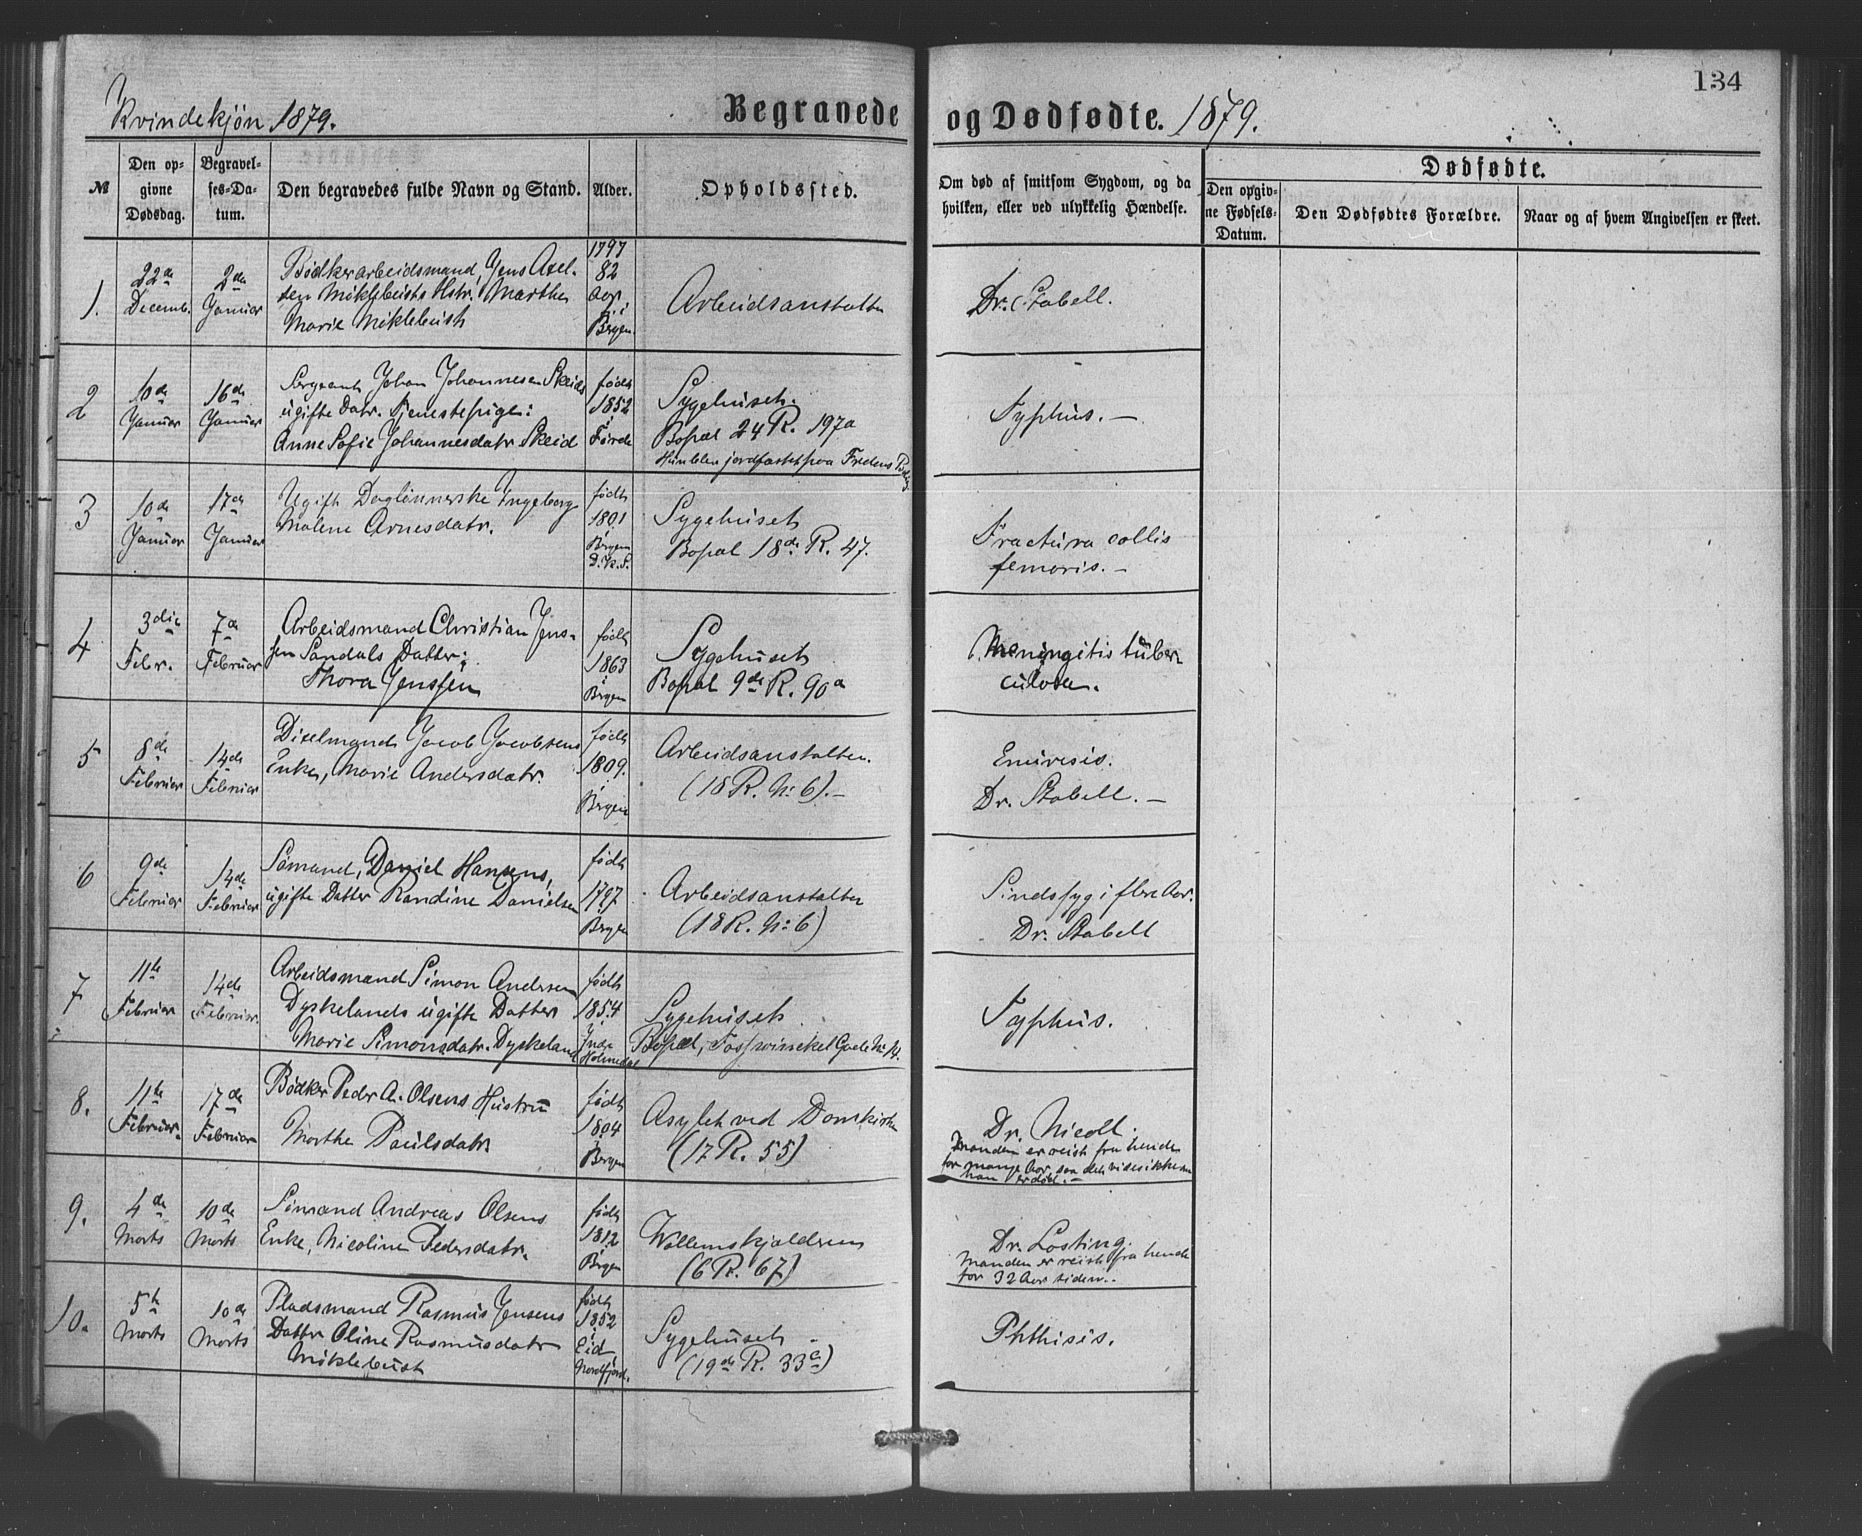 134
Kvindekjön 1879.
Begravede og Dødfødte. 1879.
№
Den opgivne Dødsdag.
Begravelses-Datum.
Den begravedes fulde Navn og Stand.
Alder.
Opholdssted.
Om død af smitsom Sygdom, og da hvilken, eller ved ulykkelig Hændelse.
Dødfødte.
Den opgivne Fødsels-Datum.
Den Dødfødtes Forældre.
Naar og af hvem Angivelsen er skeet.
1.
22de Decemb.
2de Januar
Bødkerarbeidsmand, Jens Axel-
sen Møklebusts Hstr. Marthe
Marie Møklebust
1797
82
Aar
Bergen
Arbeidsanstalten
Dr. Stabell.
2
10de Januar
16de Januar
Sergeant Johan Johannesen Skeids
ugifte Datr. Tjenestepige:
Anne Sofie Johannesdatr Skeid
født
1852
Førde
Sygehuset.
Bopæl 24 R. 197a
jordfæstet paa Fredens
Typhus. —
3
10de Januar
17de Januar
Ugift Daglønnerske Ingeborg
Malene Arnesdatr.
født
1801
Bergen
D.K.S.
Sygehuset
Bopæl 18de R. 47.
Fractura collis
femoris. —
4
3die Febr.
7de Februar
Arbeidsmand Christian Jens-
sen Sandals Datter:
Thora Jenssen
født
1863
Bergen
Sygehuset
Bopæl 9de R. 90a
Meningitis tuber-
culosa.
5
8de Februar
14de Februar
Dixelmand Jacob Jacobsens
Enke, Marie Andersdatr.
født
1809.
Bergen
Arbeidsanstalten.
(18 R. N: 6). —
Enuresis.
Dr. Stabell. —
6
9de Februar
14de Februar
Sømand, Daniel Hansens,
ugifte Datter Randine Danielsen
født
1797
Bergen
Arbeidsanstalten
(18 R. N: 6)
Sindssyg i flere Aar.
Dr. Stabell
7
11te Februar
14de Februar.
Arbeidsmand Simon Andersen
Dyskelands ugifte Datter
Marie Simonsdatr. Dyskeland
født
1854
Indr
Holmedal
Sygehuset
Bopæl, Gade N: 14.
Typhus.
8.
11te Februar.
17de Februar
Bødker Peder A. Olsens Hustru
Marthe Paulsdatr
født
1804
Bergen
Asylet ved Domkirken
(17 R. 55)
Dr. Nicoll.
Manden er reist fra hende
for mange Aar, saa det vides ikke om
han er død. —
9.
4de Marts
10de Marts
Sømand Andreas Olsens
Enke, Nicoline Pedersdatr.
født
1812
Bergen
(6 R. 67)
Dr. Losting.
Manden er reist fra hende
for 32 Aar siden.
10.
5te Marts
10de Marts
Pladsmand Rasmus Jensens
Datter Oline Rasmusdatr
Møklebust
født
1852
Eid
Nordfjord.
Sygehuset
(19de R. 33c)
Phthisis.